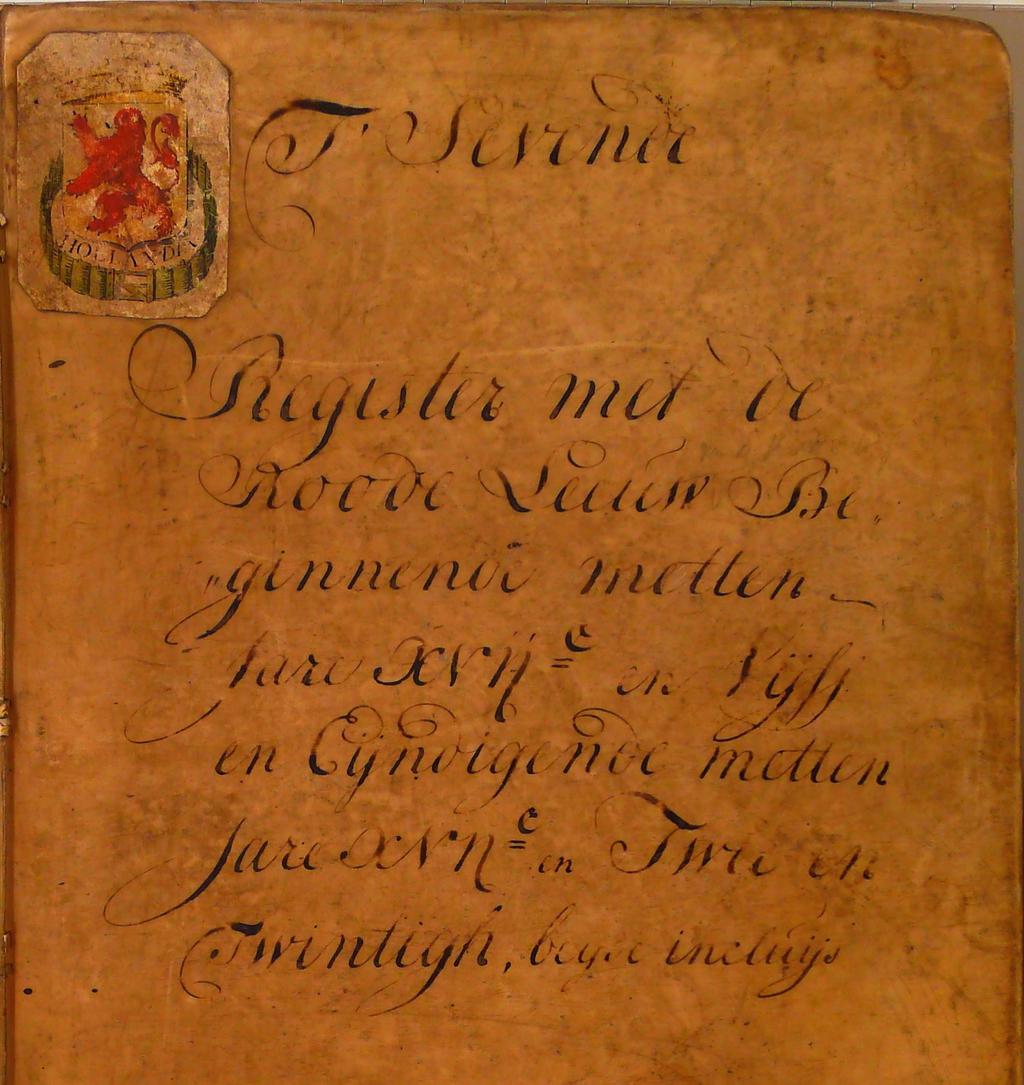 HOLLANDIA
T' Sevende
Register met de
Roode Leeuw Be„
„ginnende metten
Jare XVIJ=c en Vijff
en Eijndigende metten
Jare XVIJ=c en Twee en
Twintigh, beyde incluijs